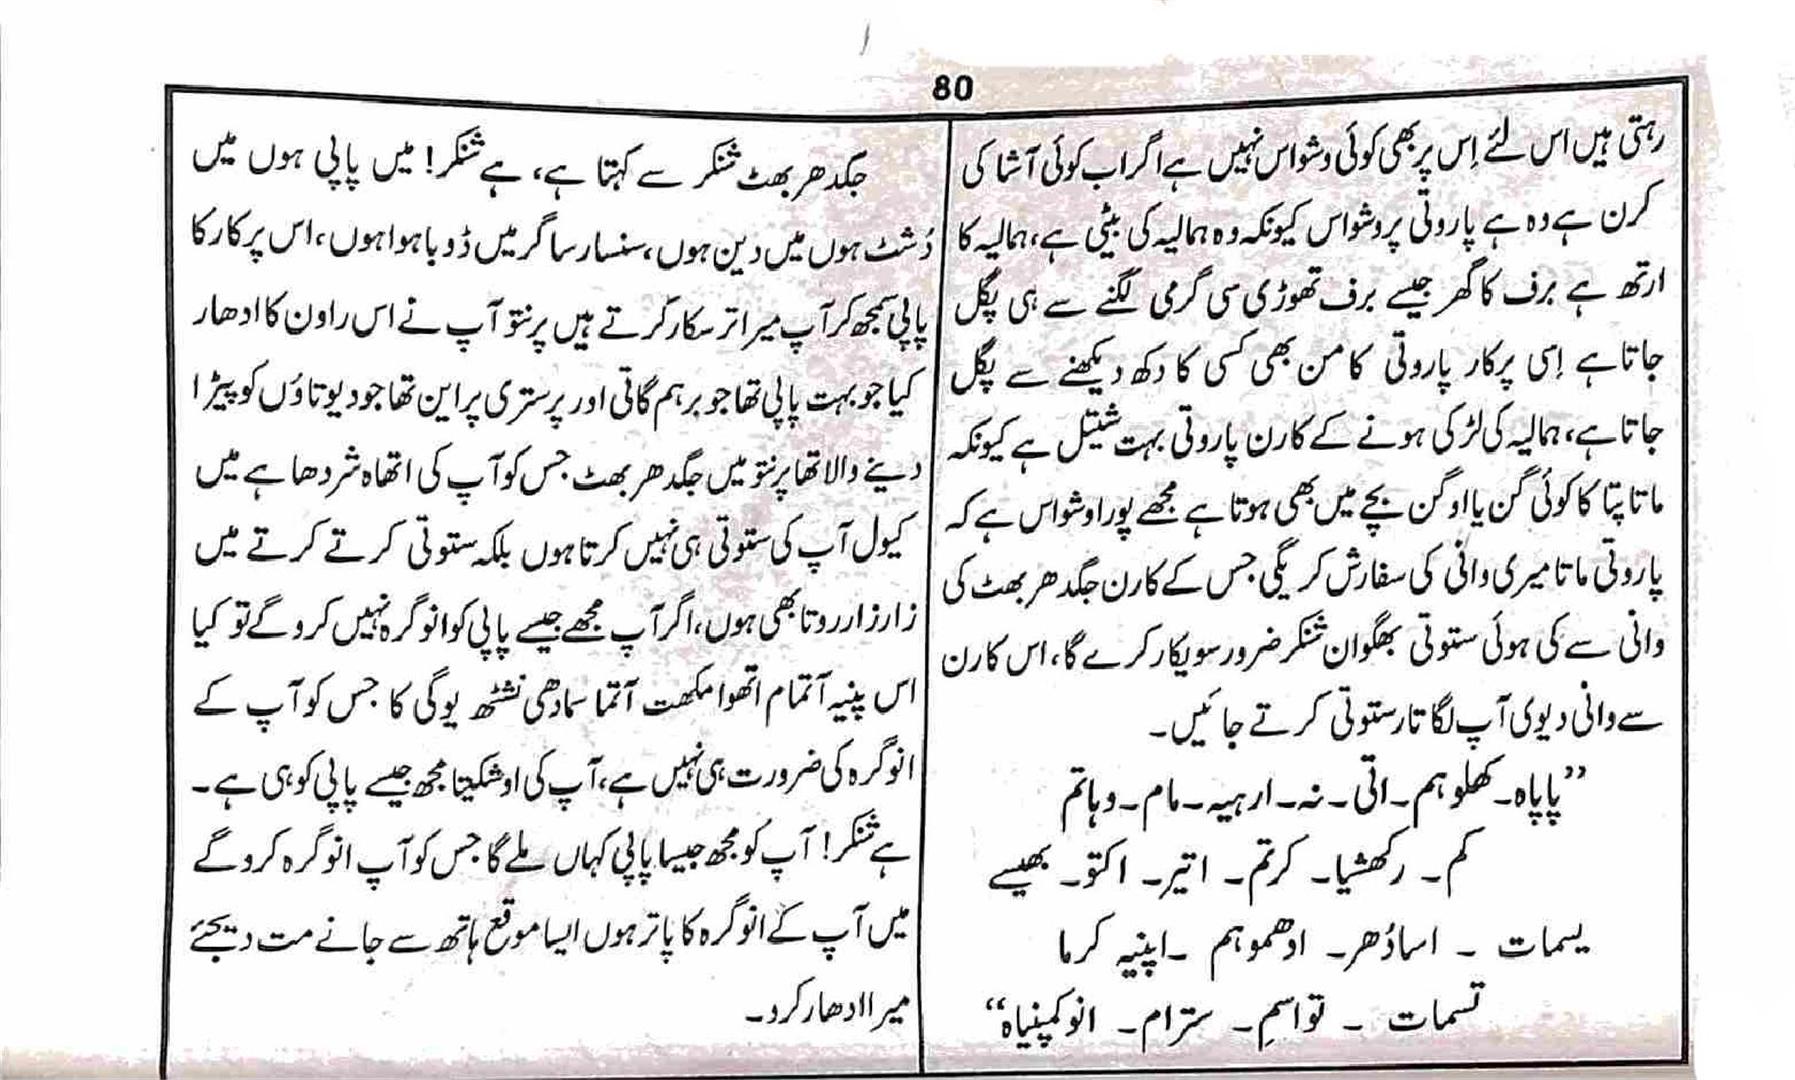 80
رہتی ہیں اس لئے اِس پر بھی کوئی وشواس نہیں ہے اگر اب کوئی آشا کی
کرن ہے وہ ہے پاروتی پر وشواس کیونکہ وہ ہمالیہ کی بیٹی ہے، ہمالیہ کا
ارتھ ہے برف کا گھر جیسے برف تھوڑی سی گرمی لگنے سے ہی پگل
جاتا ہے اِسی پرکار پاروتی کا من بھی کسی کا دکھ دیکھنے سے پگل
جاتا ہے، ہمالیہ کی لڑکی ہونے کے کارن پاروتی بہت شیتل ہے کیونکہ
ماتا پتا کا کوئی گن یا اوگن بچے میں بھی ہوتا ہے مجھے پورا وشواس ہے کہ
پاروتی ماتا میری وانی کی سفارش کریگی جس کے کارن جگدھر بھٹ کی
وانی سے کی ہوئی ستوتی بھگوان شنکر ضرور سویکار کرے گا، اس کارن
سے وانی دیوی آپ لگا تار ستوتی کرتے جائیں۔
”پاپاہ۔ کھلوہم۔ اتی۔ نہ۔ ارہیہ۔ مام۔ وہاتم
کم۔ رکھشیا۔ کرتم۔ اتیر۔ اکتو۔ بھیسے
یسمات ۔ اسادُھر۔ ادھموہم ۔اپنیہ کرما
تسمات ۔ تواسمِ۔ سترام۔ انوکمپنیاہ“
جگدھر بھٹ شنکر سے کہتا ہے، ہے شنکر! میں پاپی ہوں میں
دُشٹ ہوں میں دین ہوں، سنسار ساگر میں ڈوبا ہوا ہوں، اس پرکار کا
پاپی سمجھ کر آپ میرا ترسکار کرتے ہیں پرنتو آپ نے اس راون کا ادھار
کیا جو بہت پاپی تھا جو برہم گاتی اور پرستری پراین تھا جو دیوتاؤں کو پیڑا
دینے والا تھا پرنتو میں جگدھر بھٹ جس کو آپ کی اتھاہ شردھا ہے میں
کیول آپ کی ستوتی ہی نہیں کرتا ہوں بلکہ ستوتی کرتے کرتے میں
زار زار روتا بھی ہوں، اگر آپ مجھے جیسے پاپی کو انوگرہ نہیں کروگے تو کیا
اس پنیہ آتمام اتھوا مکھت آتما سمادھی نشٹھ یوگی کا جس کو آپ کے
انوگرہ کی ضرورت ہی نہیں ہے، آپ کی اوشکیتا مجھ جیسے پاپی کو ہی ہے۔
ہے شنکر! آپ کو مجھ جیسا پاپی کہاں ملے گا جس کو آپ انوگرہ کروگے
میں آپ کے انوگرہ کا پاتر ہوں ایسا موقع ہاتھ سے جانے مت دیجئے
میرا ادھار کرد۔